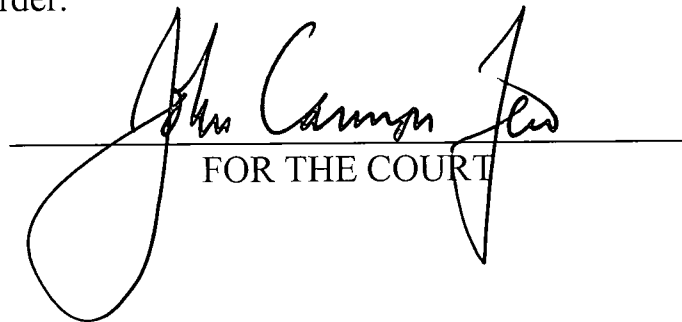 rder.
John Cannon Few
FOR THE COURT